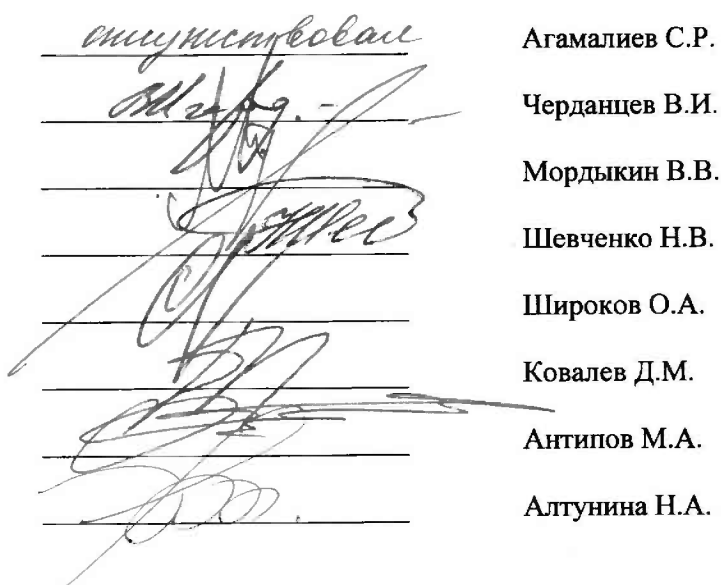 отсутствовал Агамалиев С.Р.
Черданцев В.И.
Мордыкин В.В.
Шевченко Н.В.
Широков О.А.
Ковалев Д.М.
Антипов М.А.
Алтунина Н.А.